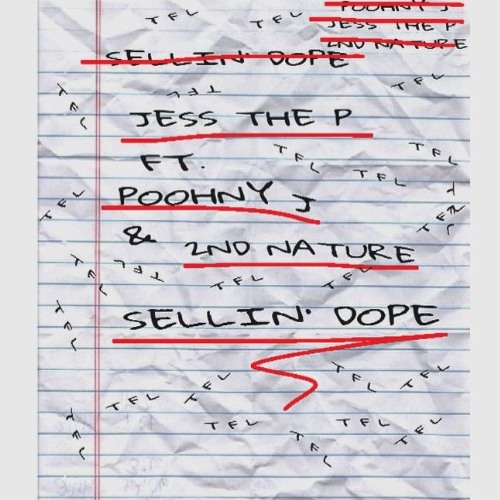 POOHNY J
JESS THE P
2ND NATURE
TFL
TFL
SELLIN' DOPE
TFL
TFL
TFL
JESS THE P
TFL
TFL
FT.
TFL
POOHNY J
TFL
TFL
TFL
&
2ND NATURE
TFL
TFL
TFL
TFL
SELLIN' DOPE
TFL
TFL
TFL
TFL
TFL
TFL
TFL
TFL
TFL
TFL